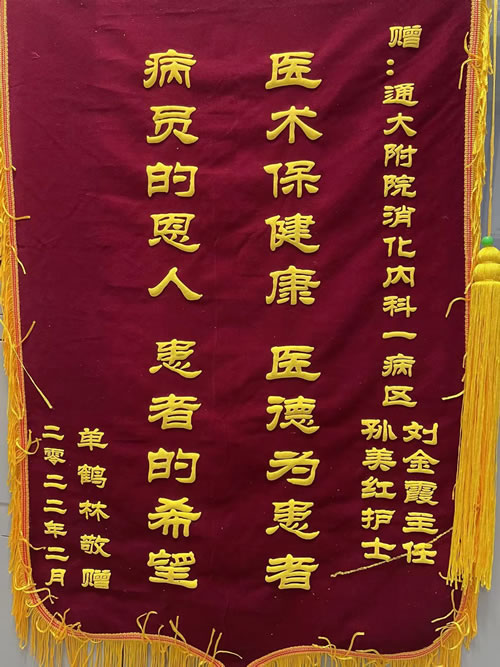 赠：通大附院消化内科一病区
刘金霞主任
孙美红护士
医术保健康 医德为患者
病员的恩人 患者的希望
单鹤林敬赠
二零二二年二月